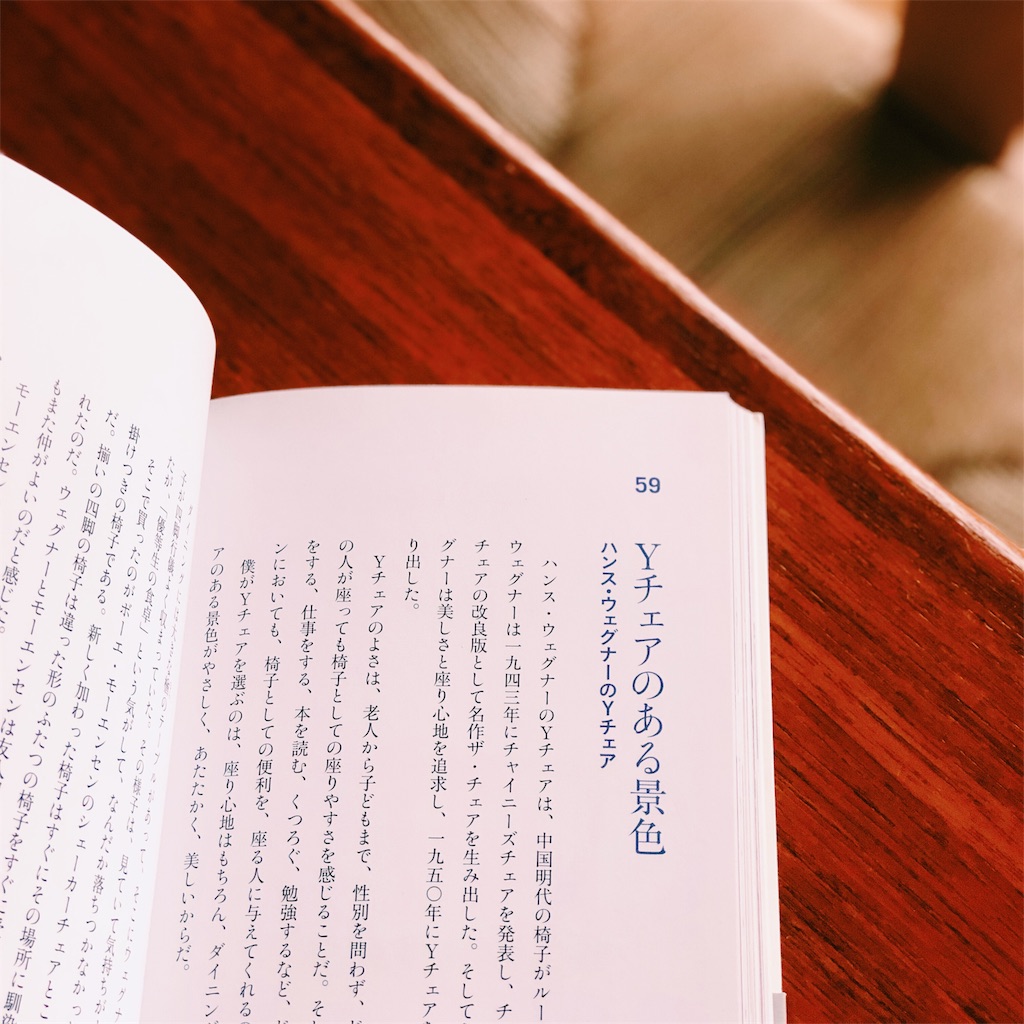 59
Yチェアのある景色
ハンス・ウェグナーのYチェア
ハンス・ウェグナーのYチェアは、中国明代の椅子がルー
ウェグナーは一九四三年にチャイニーズチェアを発表し、チ
チェアの改良版として名作ザ・チェアを生み出した。そして
グナーは美しさと座り心地を追求し、一九五〇年にYチェア
り出した。
Yチェアのよさは、老人から子どもまで、性別を問わず、ど
の人が座っても椅子としての座りやすさを感じることだ。そ
をする、仕事をする、本を読む、くつろぐ、勉強するなど、ど
ンにおいても、椅子としての便利を、座る人に与えてくれるの
僕がYチェアを選ぶのは、座り心地はもちろん、ダイニング
アのある景色がやさしく、あたたかく、美しいからだ。
たが、「優等生の食卓」という気がして、なんだか落ちつかなかっ
そこで買ったのがボーエ・モーエンセンのシェーカーチェアとこ
掛けつきの椅子である。新しく加わった椅子はすぐにその場所に馴染
だ。揃いの四脚の椅子は違った形のふたつの椅子をすぐに
れたのだ。ウェグナーとモーエンセンは友人
もまた仲がよいのだと感じた。
モーエンセン